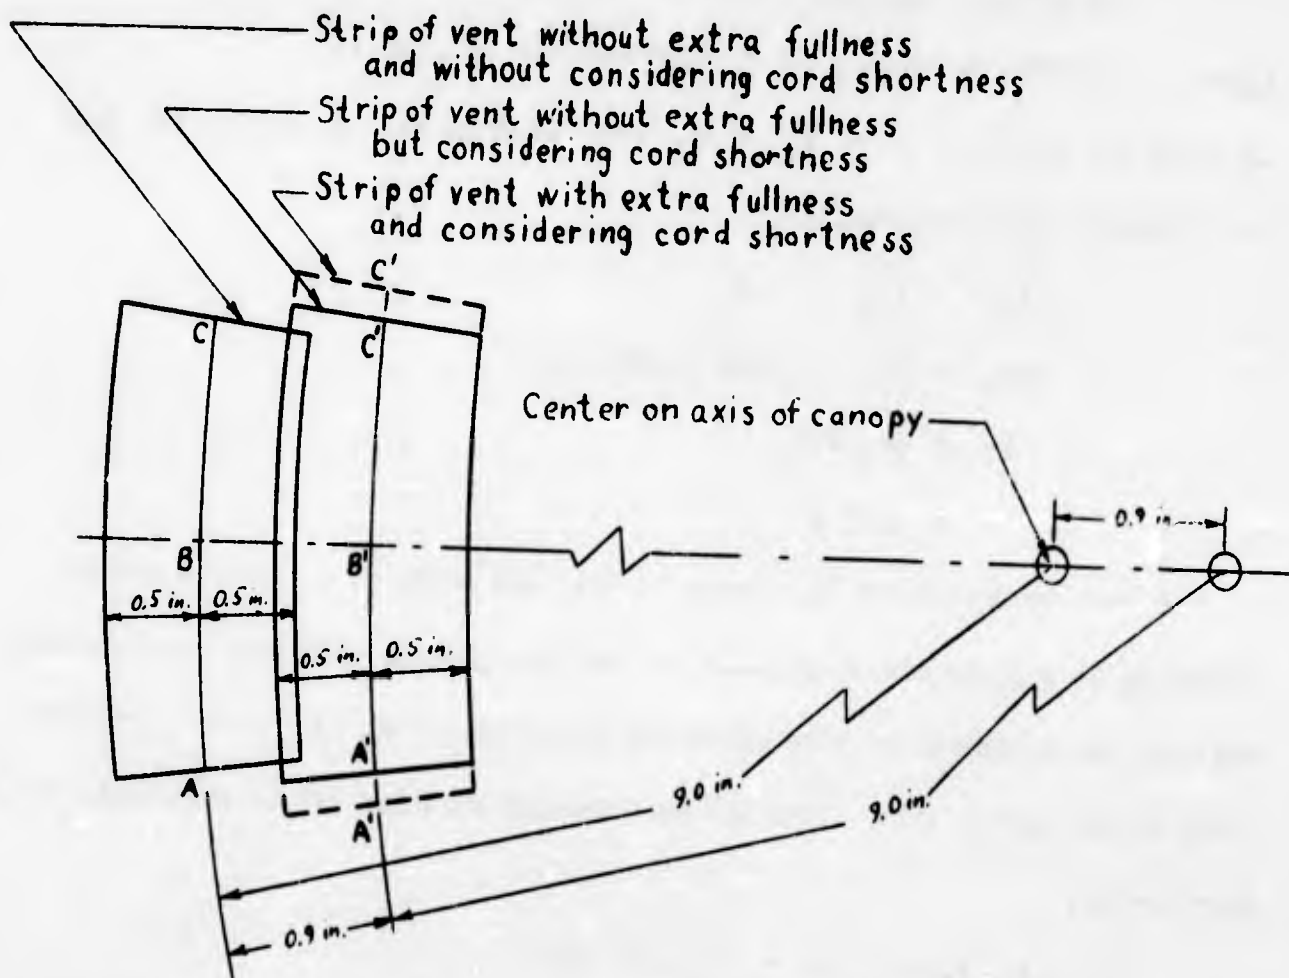 Strip of vent without extra fullness
and without considering cord shortness
Strip of vent without extra fullness
but considering cord shortness
Strip of vent with extra fullness
and considering cord shortness
C'
C
C'
Center on axis of canopy
0.9 in.
B
B'
0.5 in.
0.5 in.
0.5 in.
0.5 in.
A'
A
A'
9.0 in.
9.0 in.
0.9 in.